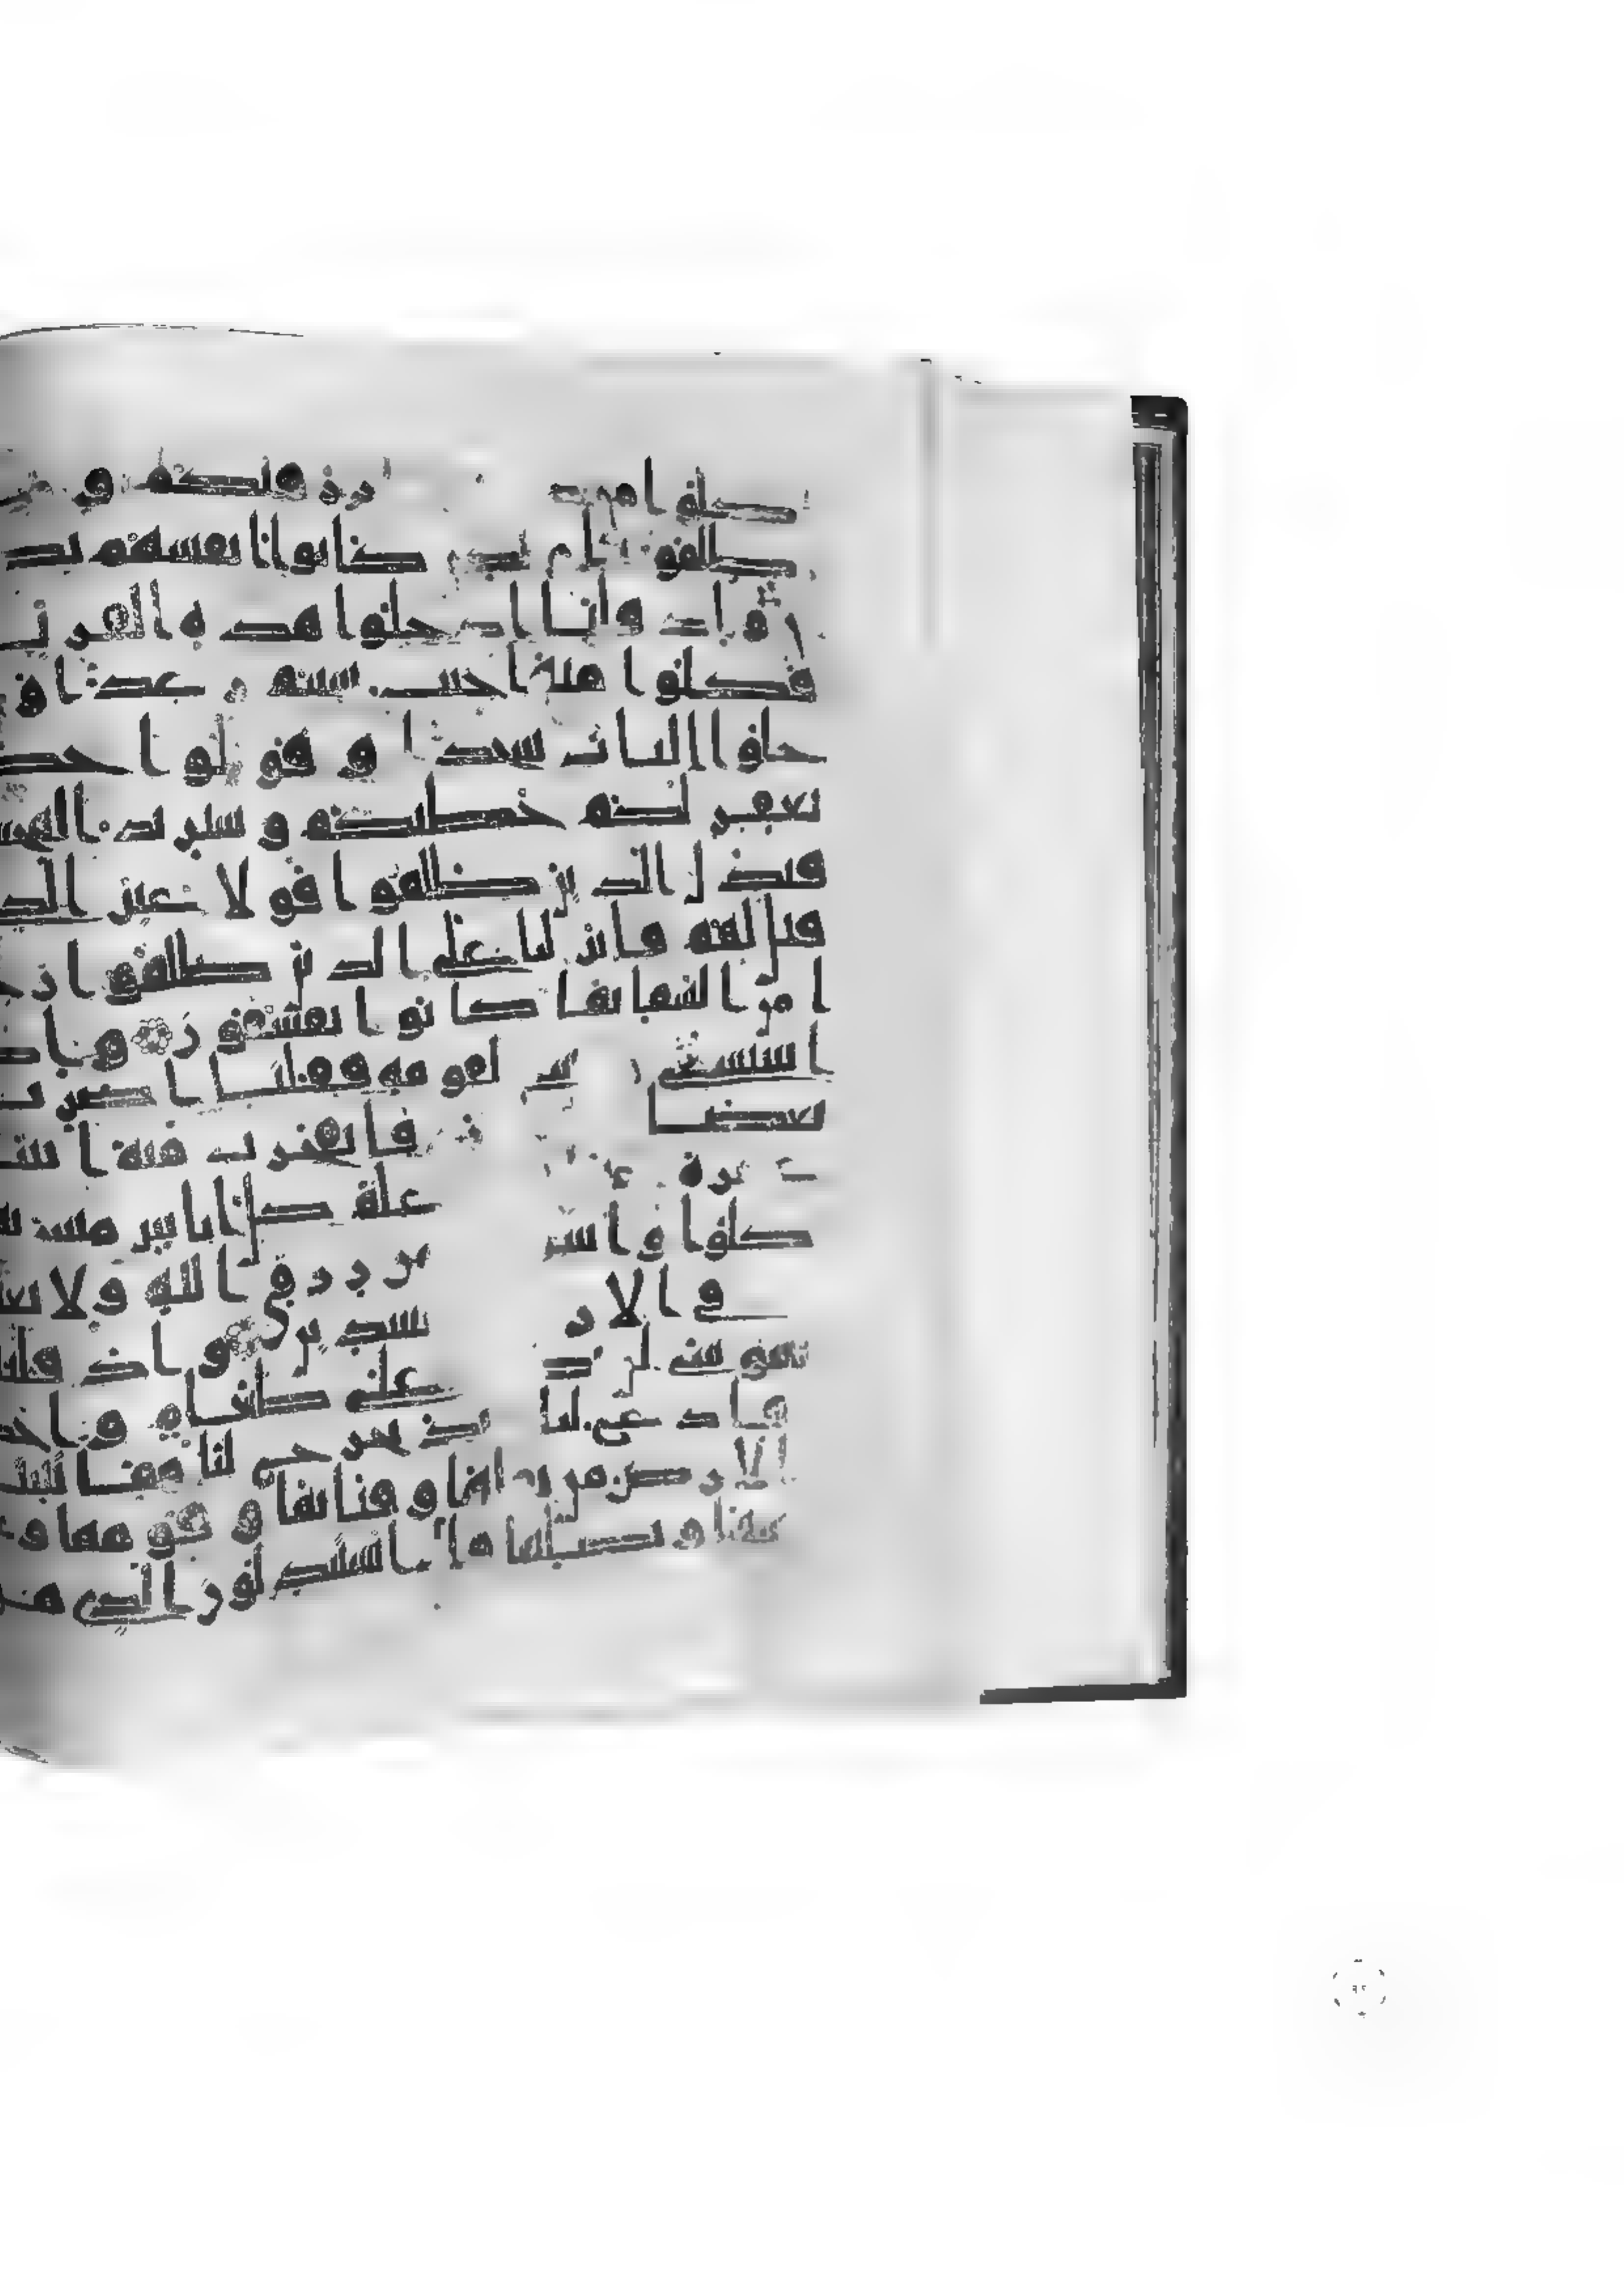 كلوا من طيبت ما رزقنكم و
ظلمونا و لكن كانوا انفسهم يظ
و اذ قلنا ادخلوا هذه القر
فكلوا منها حيث شئتم رغدا و
خلوا الباب سجدا و قولوا حط
نغفر لكم خطيكم و سنزيد المحس
فبدل الذين ظلموا قولا غير الذي
قيل لهم فانزلنا علي الذين ظلموا ر
ا من السما بما كانوا يفسقون واذ
استسقي موسي لقومه فقلنا اضرب
بعصا فانفجرت منه اثنتا
عشرة عينا علم كل اناس مشر
كلوا واشر من رزق الله ولا تع
في الار مفسدين واذ قلتم
يموسي لن نصبر علي طعام واحد
فادع لنا ربك يخرج لنا مما تنبت
الارض من بقلها و قثائها و فومها وعد
سها و بصلها قال اتستبدلون الذي هو